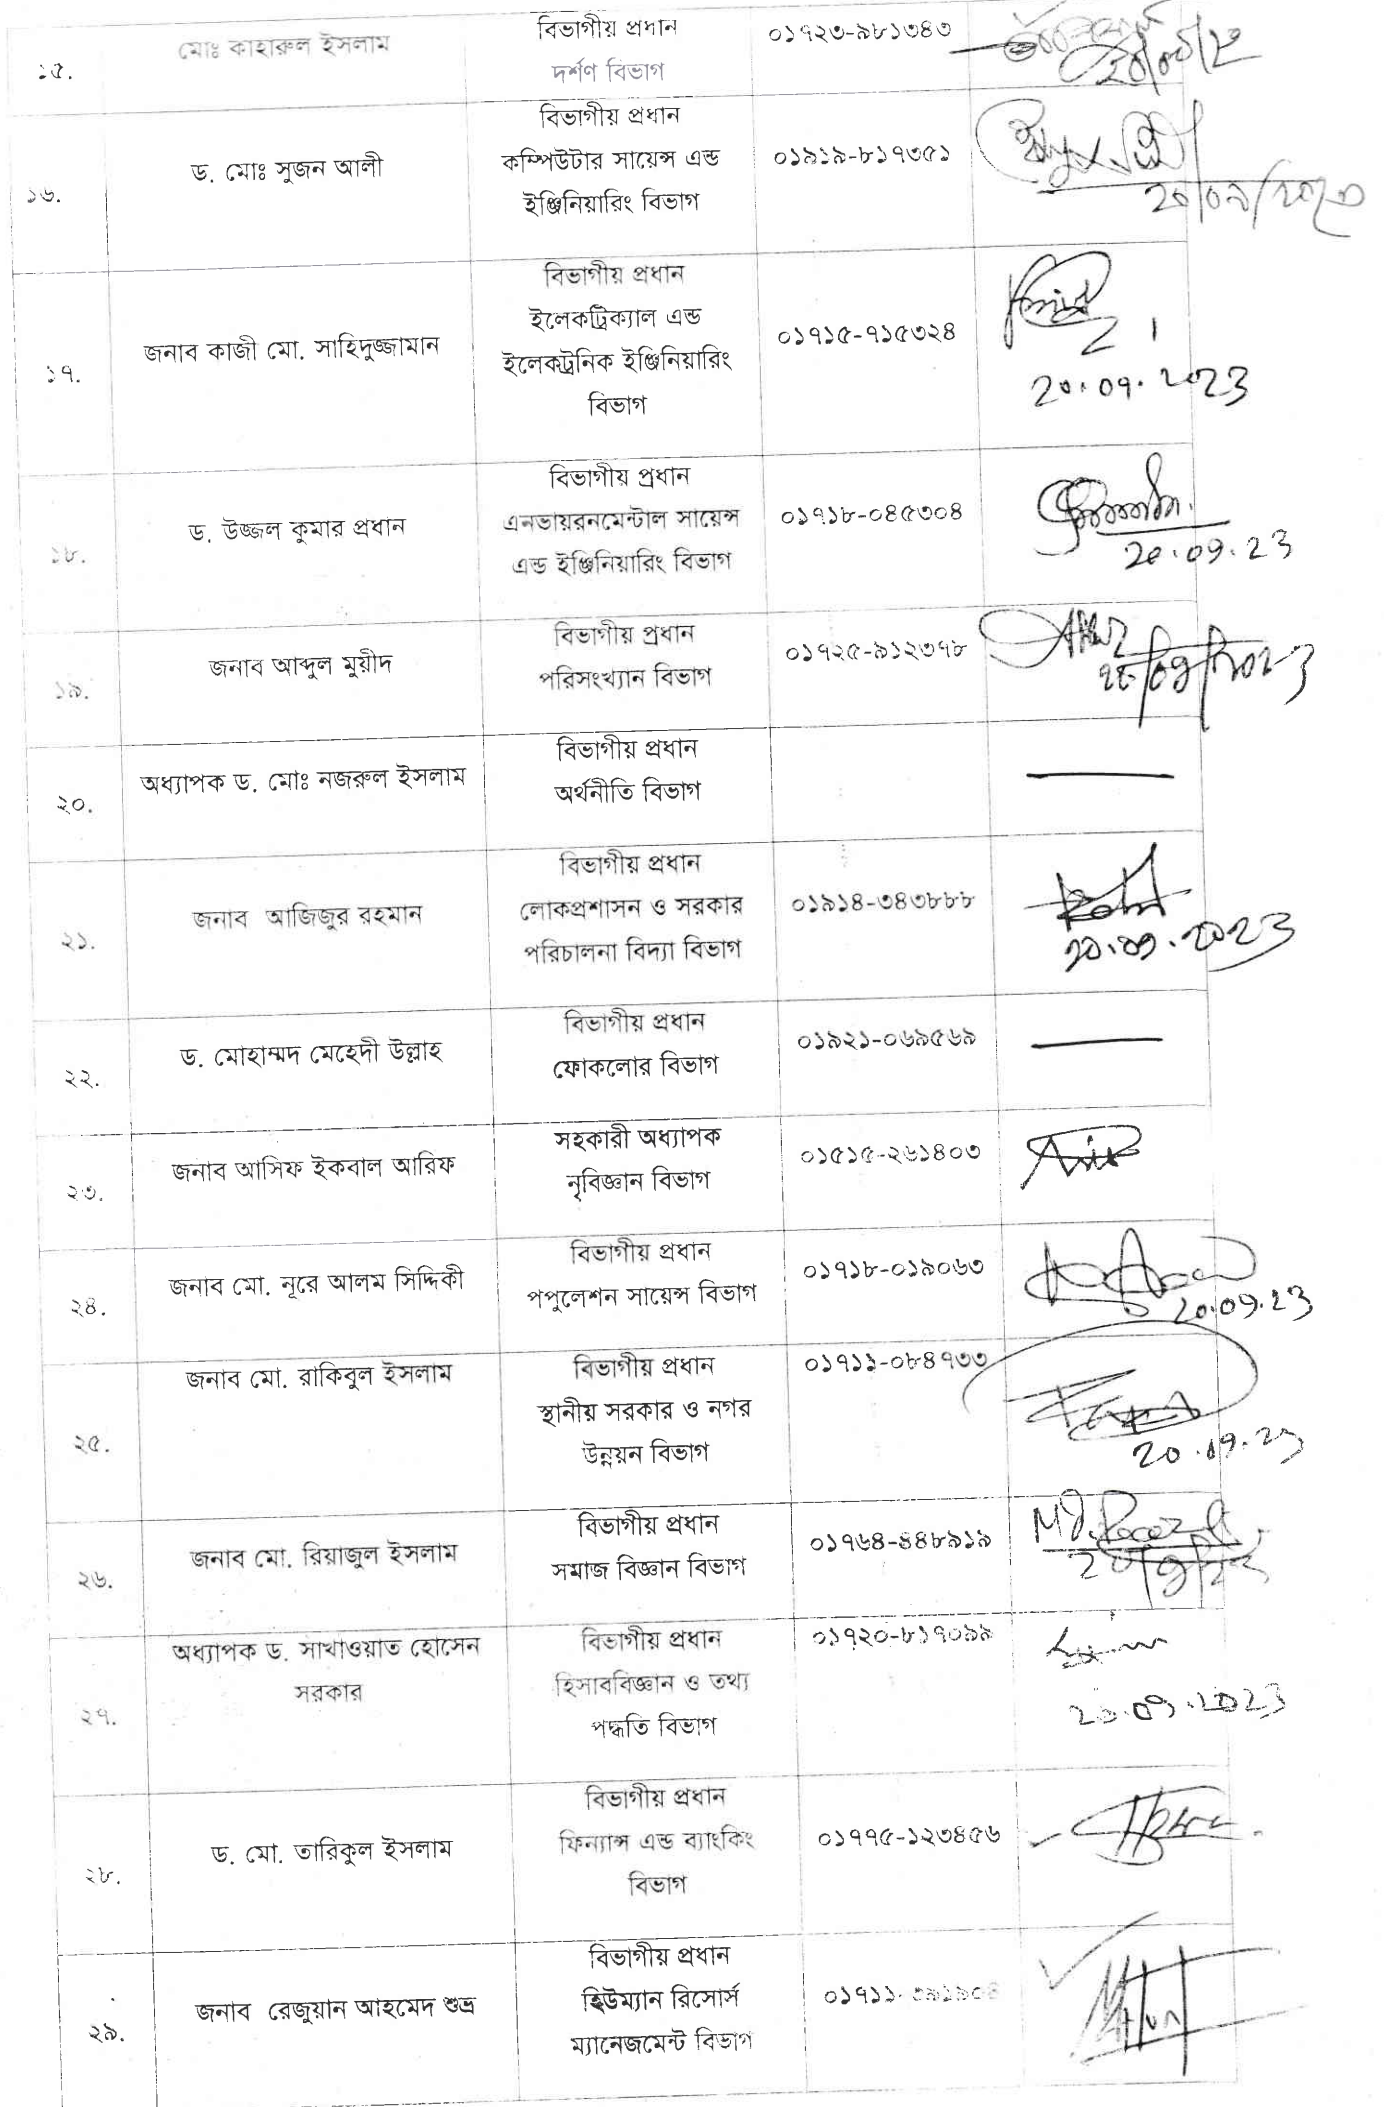 ১৫.
মোঃ কাহারুল ইসলাম
বিভাগীয় প্রধান
দর্শণ বিভাগ
০১৭২৩-৯৮১৩৪৩
১৬.
ড. মোঃ সুজন আলী
বিভাগীয় প্রধান
কম্পিউটার সায়েন্স এন্ড
ইঞ্জিনিয়ারিং বিভাগ
০১৯১৯-৮১৭৩৫১
২০/০৯/২০২৩
১৭.
জনাব কাজী মো. সাহিদুজ্জামান
বিভাগীয় প্রধান
ইলেকট্রিক্যাল এন্ড
ইলেকট্রনিক ইঞ্জিনিয়ারিং
বিভাগ
০১৭১৫-৭১৫৩২৪
20.09.2023
১৮.
ড. উজ্জল কুমার প্রধান
বিভাগীয় প্রধান
এনভায়রনমেন্টাল সায়েন্স
এন্ড ইঞ্জিনিয়ারিং বিভাগ
০১৭১৮-০৪৫৩০৪
20.09.23
১৯.
জনাব আব্দুল মুয়ীদ
বিভাগীয় প্রধান
পরিসংখ্যান বিভাগ
০১৭২৫-৯১২৩৭৮
২০.
অধ্যাপক ড. মোঃ নজরুল ইসলাম
বিভাগীয় প্রধান
অর্থনীতি বিভাগ
২১.
জনাব আজিজুর রহমান
বিভাগীয় প্রধান
লোকপ্রশাসন ও সরকার
পরিচালনা বিদ্যা বিভাগ
০১৯১৪-৩৪৩৮৮৮
20.09.2023
২২.
ড. মোহাম্মদ মেহেদী উল্লাহ
বিভাগীয় প্রধান
ফোকলোর বিভাগ
০১৯২১-০৬৯৫৬৯
২৩.
জনাব আসিফ ইকবাল আরিফ
সহকারী অধ্যাপক
নৃবিজ্ঞান বিভাগ
০১৫১৫-২৬১৪০৩
২৪.
জনাব মো. নূরে আলম সিদ্দিকী
বিভাগীয় প্রধান
পপুলেশন সায়েন্স বিভাগ
০১৭১৮-০১৯০৬৩
20.09.23
২৫.
জনাব মো. রাকিবুল ইসলাম
বিভাগীয় প্রধান
স্থানীয় সরকার ও নগর
উন্নয়ন বিভাগ
০১৭১১-০৮৪৭৩৩
20.09.23
২৬.
জনাব মো. রিয়াজুল ইসলাম
বিভাগীয় প্রধান
সমাজ বিজ্ঞান বিভাগ
০১৭৬৪-৪৪৮৯১৯
২৭.
অধ্যাপক ড. সাখাওয়াত হোসেন
সরকার
বিভাগীয় প্রধান
হিসাববিজ্ঞান ও তথ্য
পদ্ধতি বিভাগ
০১৭২০-৮১৭০৯৯
20.09.2023
২৮.
ড. মো. তারিকুল ইসলাম
বিভাগীয় প্রধান
ফিন্যান্স এন্ড ব্যাংকিং
বিভাগ
০১৭৭৫-১২৩৪৫৬
২৯.
জনাব রেজুয়ান আহমেদ শুভ্র
বিভাগীয় প্রধান
হিউম্যান রিসোর্স
ম্যানেজমেন্ট বিভাগ